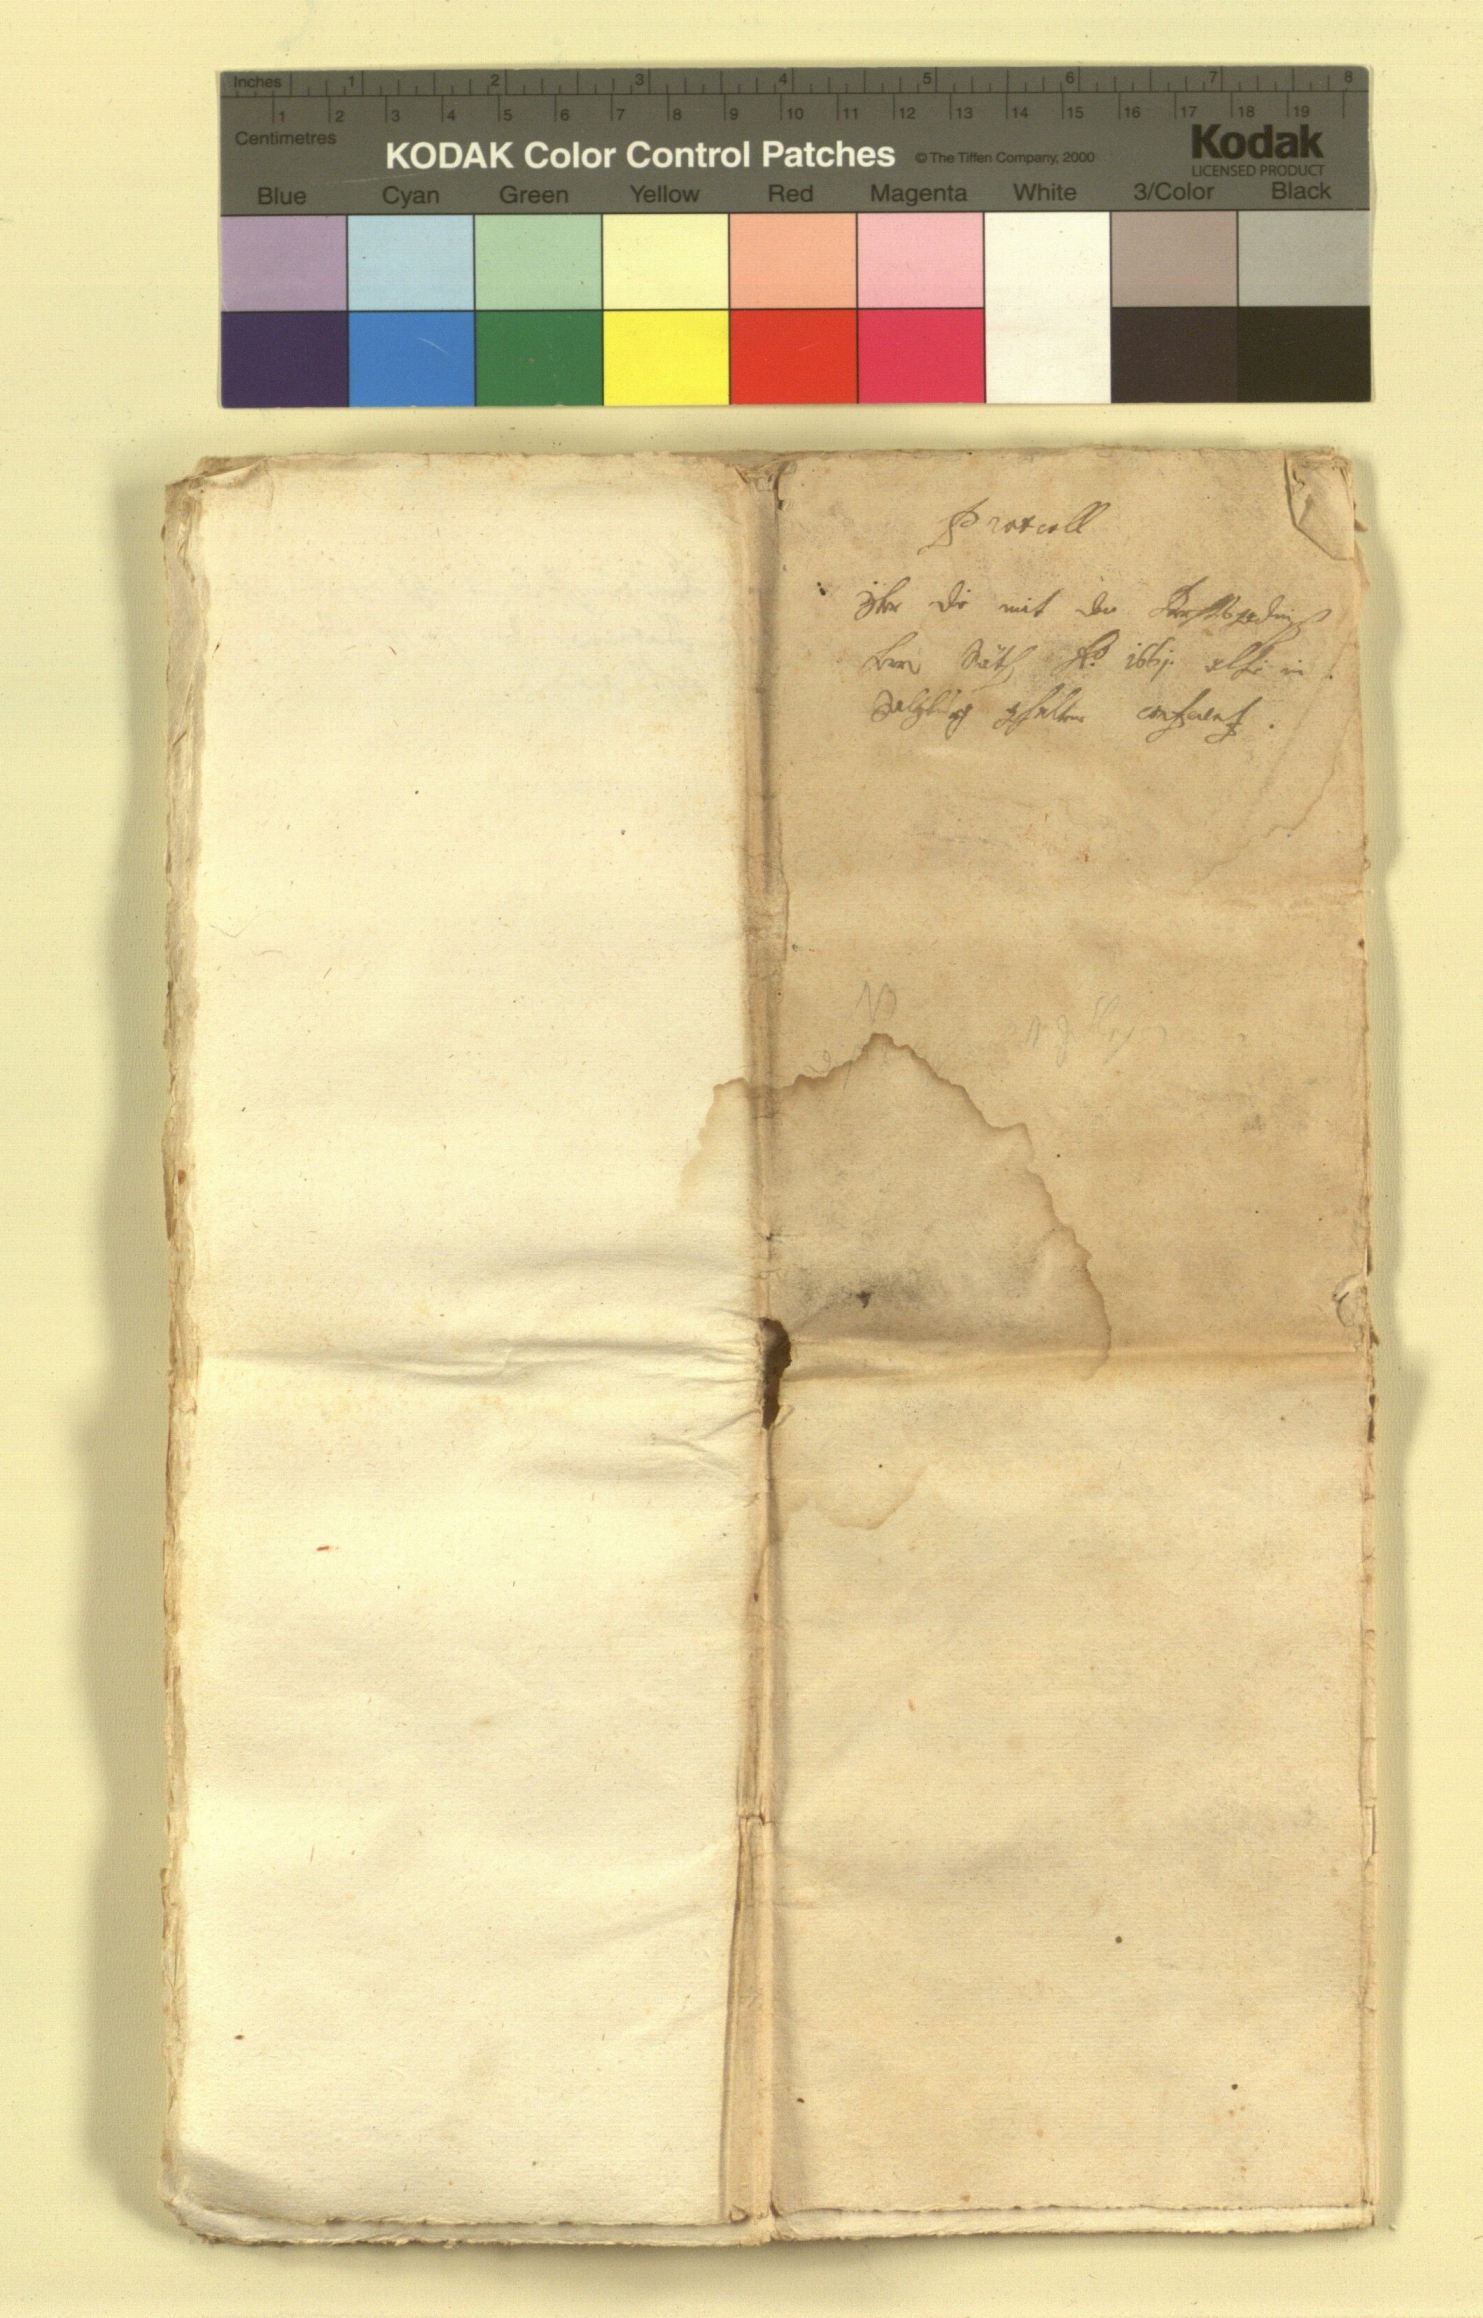 Inches 1 2 3 4 5 6 7 8
1 2 3 4 5 6 7 8 9 10 11 12 13 14 15 16 17 18 19
Centimetres
KODAK Color Control Patches © The Tiffen Company, 2000 Kodak
LICENSED PRODUCT
Blue Cyan Green Yellow Red Magenta White 3/Color Black
Protcoll
über die mit den
Räth Ao. 1661. alhie in
Salzburg gehaltene